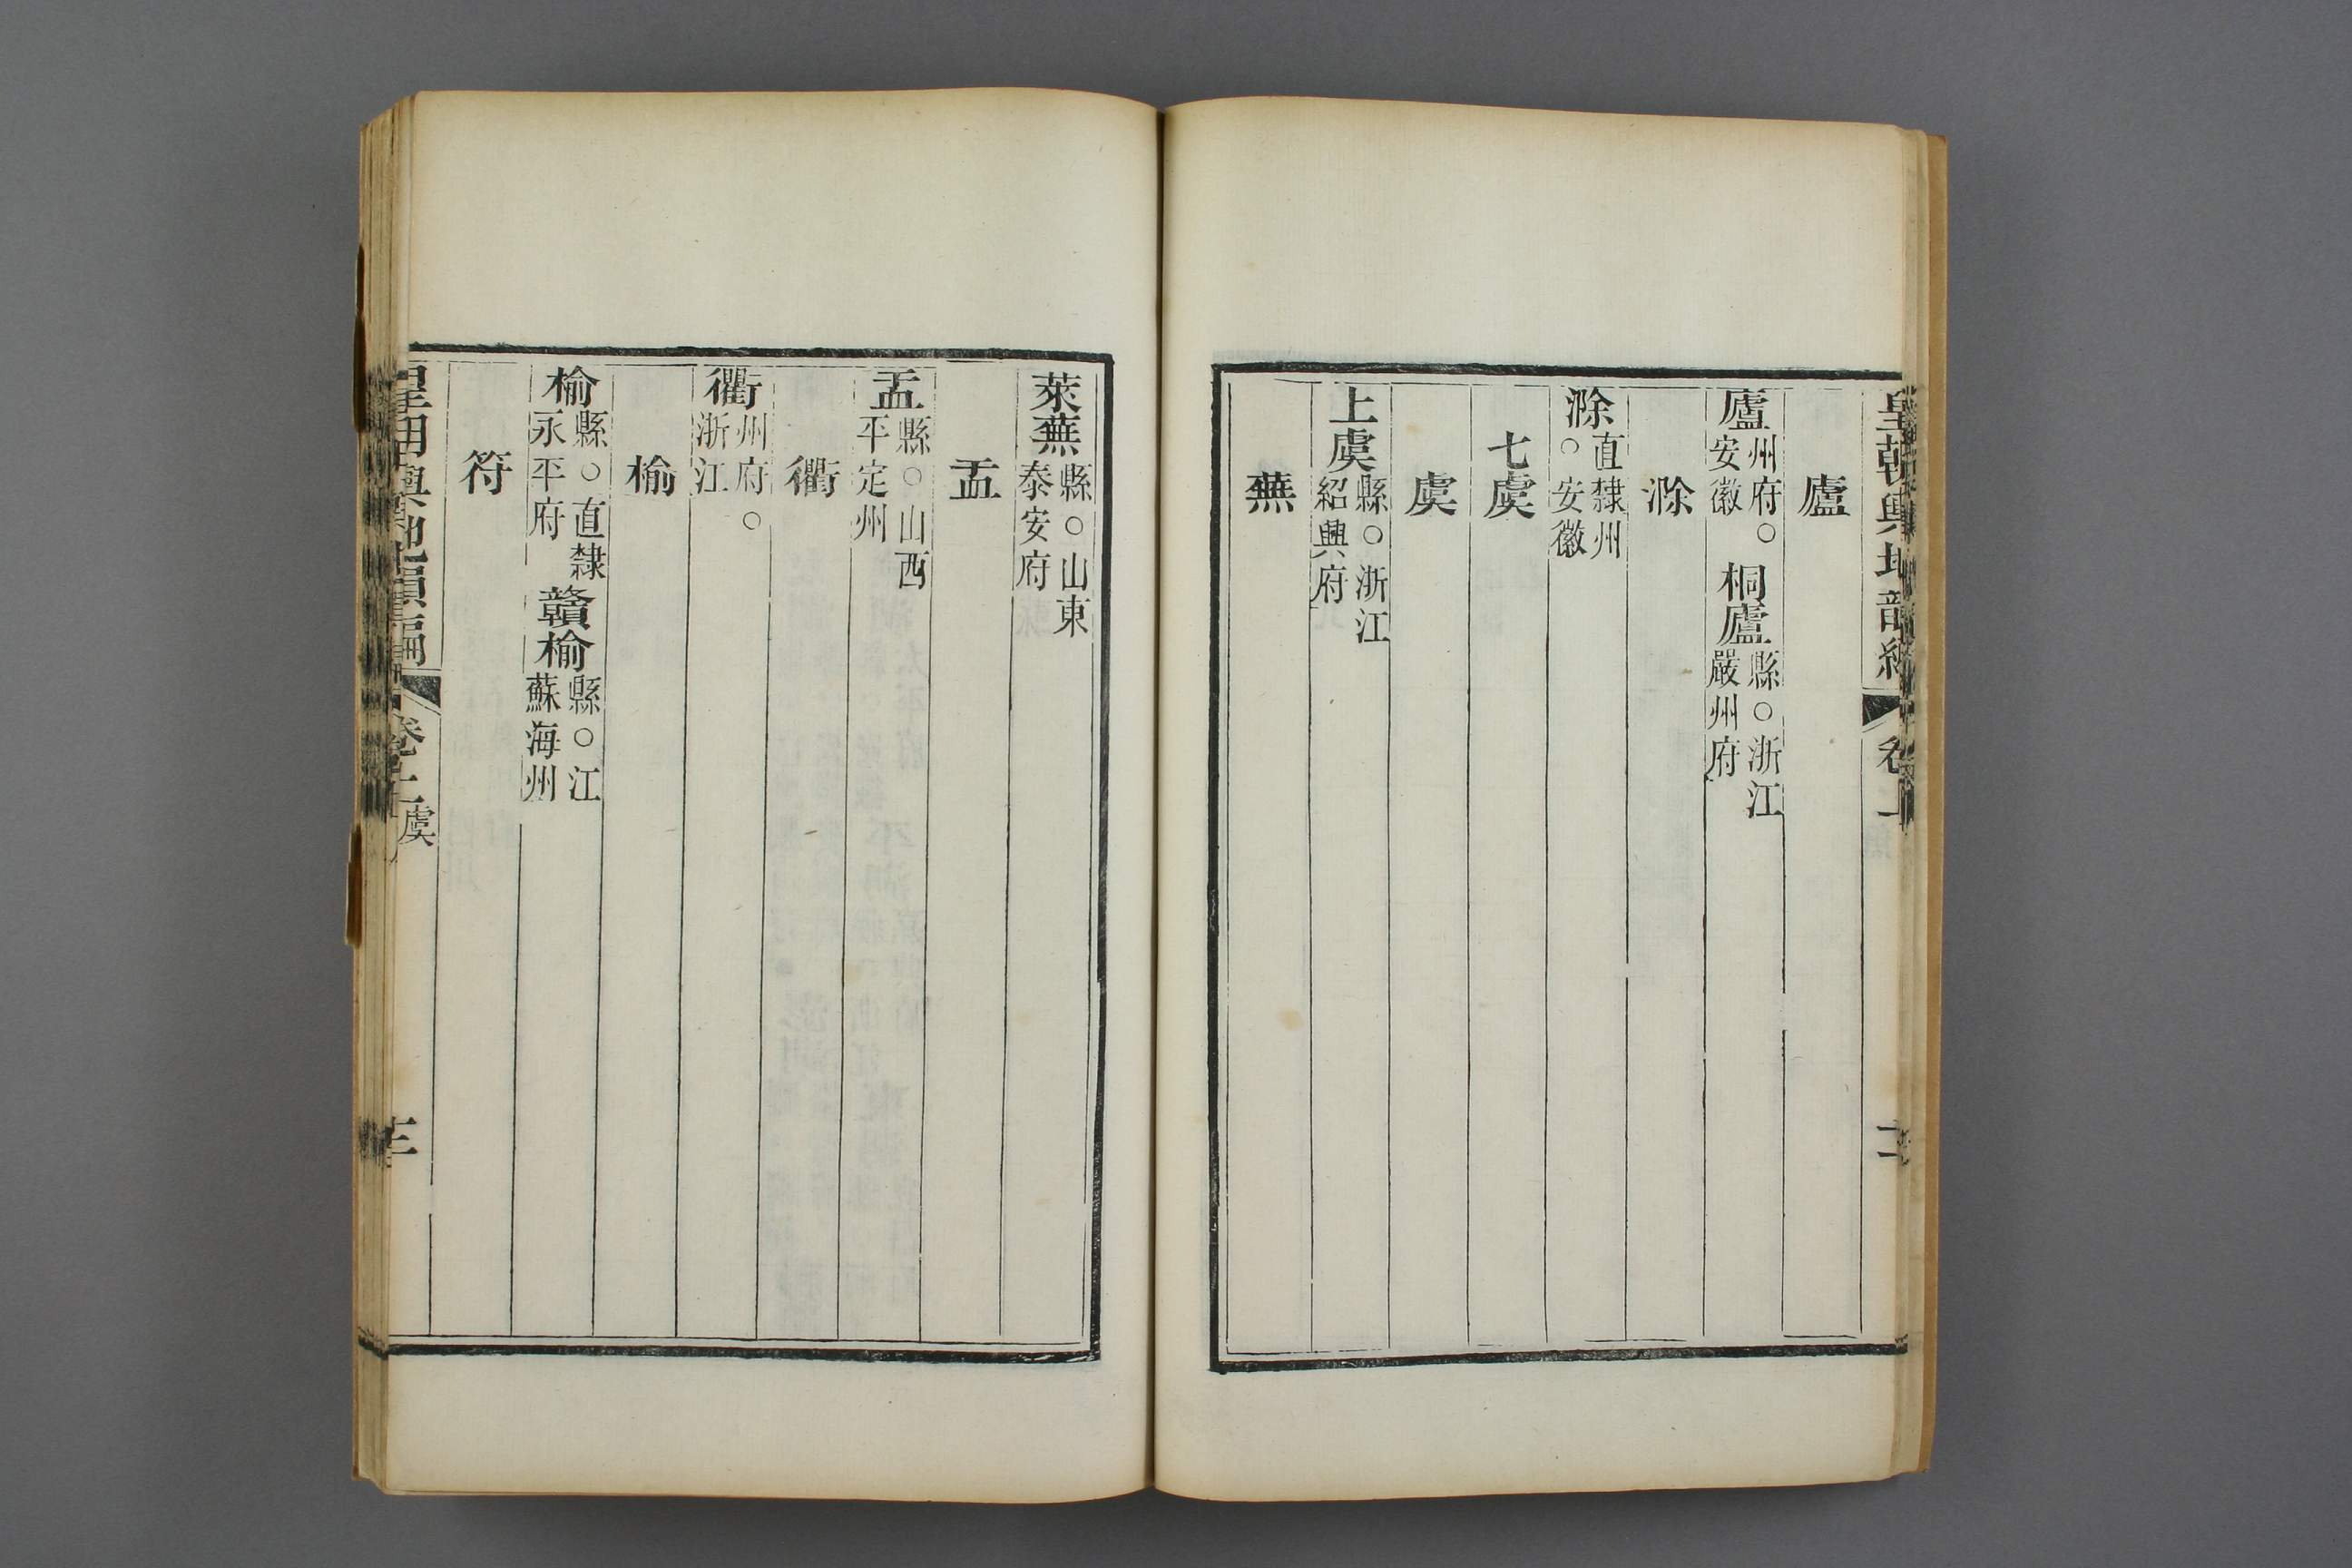 皇朝輿地韻編 卷一
廬
廬州府○安徽 桐廬縣○浙江嚴州府
滁
滁直隸州○安徽
七虞
虞
上虞縣○浙江紹興府
蕪
萊蕪縣○山東泰安府
盂
盂縣○山西平定州
衢
衢州府○浙江
榆
榆縣○直隸永平府 贛榆縣○江蘇海州
符
皇朝輿地韻編 卷上 虞